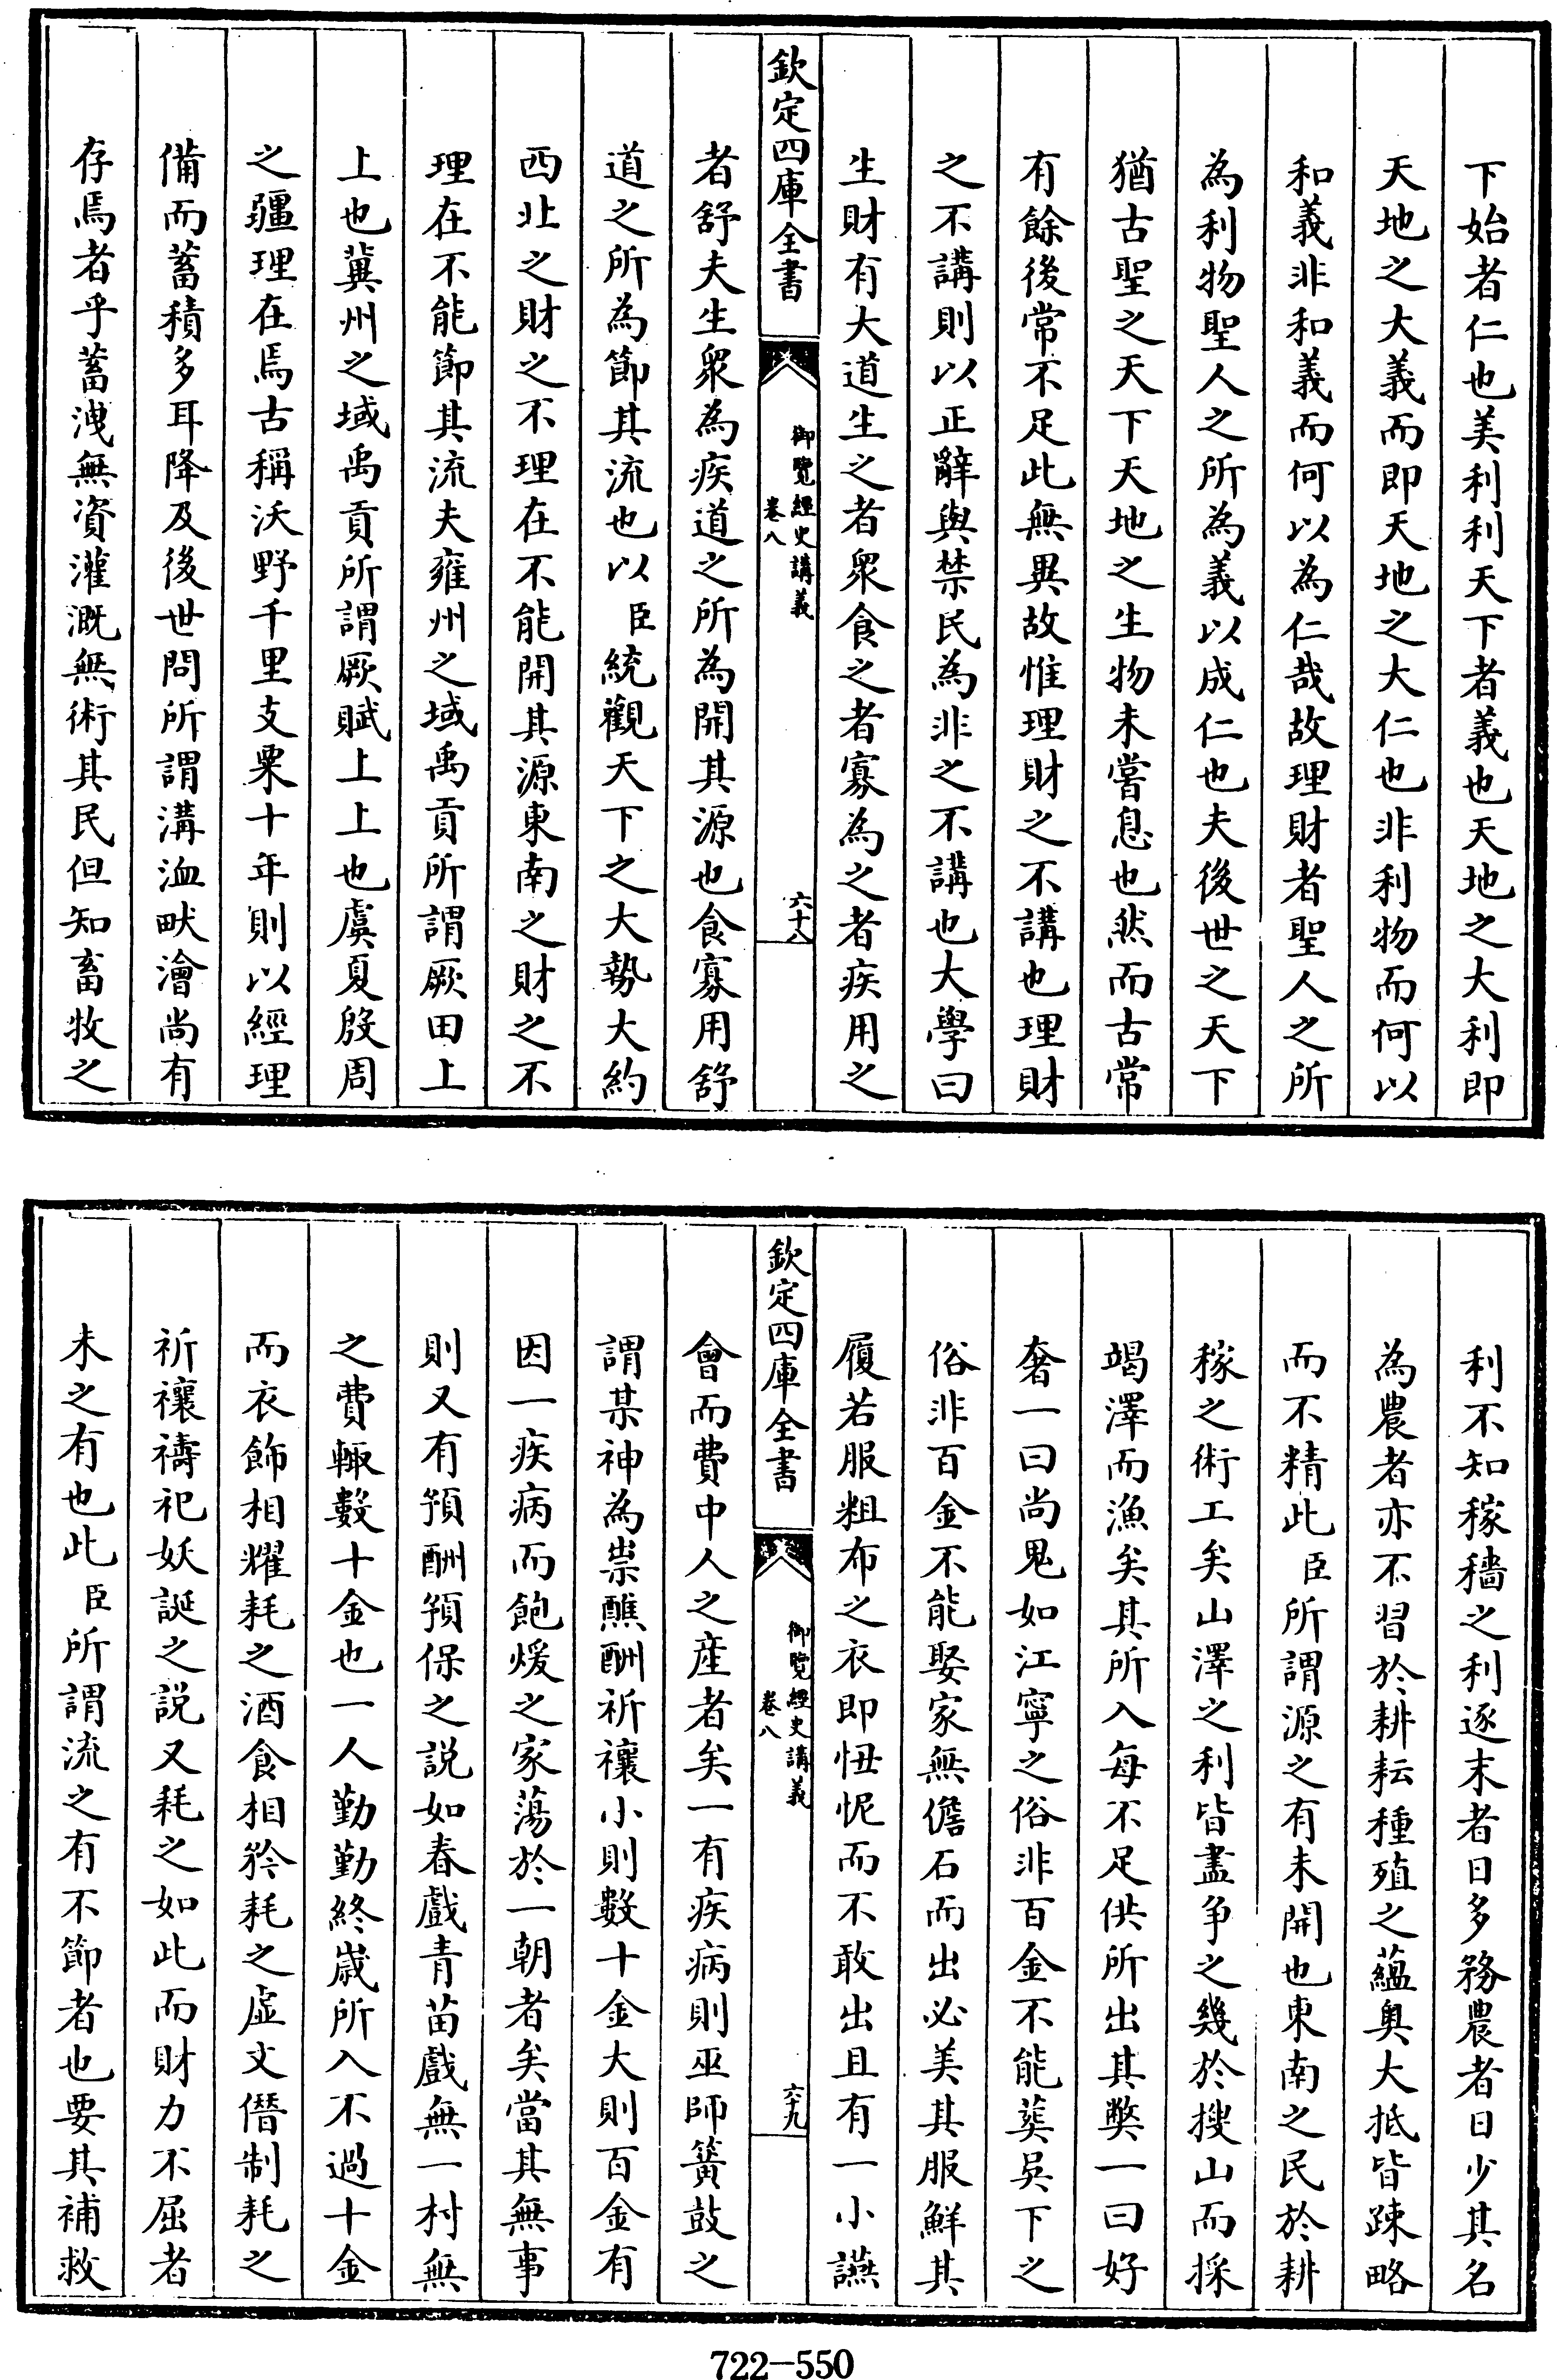 下始者仁也美利利天下者義也天地之大利即
天地之大義而即天地之大仁也非利物而何以
和義非和義而何以為仁哉故理財者聖人之所
為利物聖人之所為義以成仁也夫後世之天下
猶古聖之天下天地之生物未嘗息也然而古常
有餘後常不足此無異故惟理財之不講也理財
之不講則以正辭與禁民為非之不講也大學曰
生財有大道生之者衆食之者寡為之者疾用之
欽定四庫全書
御覽經史講義
卷八
六十八
者舒夫生衆為疾道之所為開其源也食寡用舒
道之所為節其流也以臣統觀天下之大勢大約
西北之財之不理在不能開其源東南之財之不
理在不能節其流夫雍州之域禹貢所謂厥田上
上也冀州之域禹貢所謂厥賦上上也虞夏殷周
之疆理在焉古稱沃野千里支粟十年則以經理
備而蓄積多耳降及後世問所謂溝洫畎澮尚有
存焉者乎蓄洩無資灌溉無術其民但知畜牧之
利不知稼穡之利逐末者日多務農者日少其名
為農者亦不習於耕耘種殖之蘊奥大抵皆踈略
而不精此臣所謂源之有未開也東南之民於耕
稼之術工矣山澤之利皆盡爭之幾於搜山而採
竭澤而漁矣其所入每不足供所出其弊一曰好
奢一曰尚鬼如江寧之俗非百金不能葬吳下之
俗非百金不能娶家無儋石而出必美其服鮮其
履若服粗布之衣即忸怩而不敢出且有一小讌
欽定四庫全書
御覽經史講義
卷八
六十九
會而費中人之産者矣一有疾病則巫師簧鼓之
謂某神為祟醮酬祈禳小則數十金大則百金有
因一疾病而飽煖之家蕩於一朝者矣當其無事
則又有預酬預保之説如春戲青苗戲無一村無
之費輒數十金也一人勤勤終歲所入不過十金
而衣飾相耀耗之酒食相矜耗之虛文僭制耗之
祈禳禱祀妖誕之説又耗之如此而財力不屈者
未之有也此臣所謂流之有不節者也要其補救
722-550